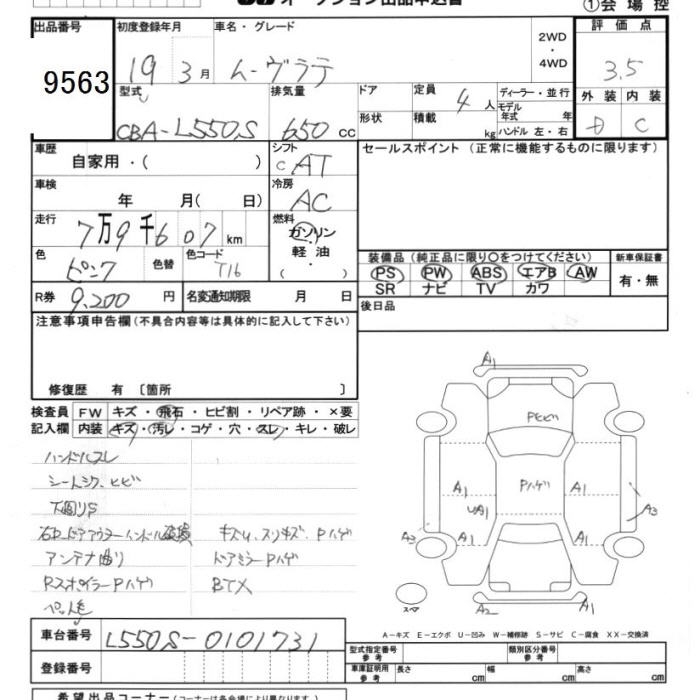 オークション出品申込書 ①会場控
出品番号 初度登録年月 車名・グレード 2WD ・ 4WD 評価点
9563 19 3月 ムーヴラテ 3.5
型式 排気量 ドア 定員 4人 ディーラー・並行 外装 内装
CBA-L550S 650 cc 形状 積載 kg モデル年式 年 ハンドル 左・右 D C
車歴 自家用・( ) シフト C AT セールスポイント (正常に機能するものに限ります)
車検 年 月( 日) 冷房 AC
走行 7万9千607 km 燃料 ガソリン 軽油 ・
色 ピンク 色替 色コード T16 装備品 (純正品に限り○をつけてください) 新車保証書
PS PW ABS エアB AW 有・無
SR ナビ TV カワ
R券 9,200 円 名変通知期限 月 日 後日品
注意事項申告欄 (不具合内容等は具体的に記入して下さい)
修復歴 有 〔箇所 〕
検査員 FW キズ・飛石・ヒビ割・リペア跡・×要
記入欄 内装 キズ・汚レ・コゲ・穴・スレ・キレ・破レ
ハンドルスレ
シートシワ、ヒビ
下廻りS
右Rドアアウターハンドル破損 キズU、スリキズ、Pハゲ
アンテナ曲り ドアミラーPハゲ
RスポイラーPハゲ BTX
ペット毛
A1
Pヒビ
Pハゲ
A1 A1 A1
UA1
A3 A1 A1 A3
スペア A2 A1
A-キズ E-エクボ U-凹み W-補修跡 S-サビ C-腐食 XX-交換済
車台番号 L550S-0101731
型式指定番号 参考 類別区分番号 参考
登録番号 車庫証明用 参考 長さ cm 幅 cm 高さ cm
希望出品コーナー (コーナーは各会場により異なります)